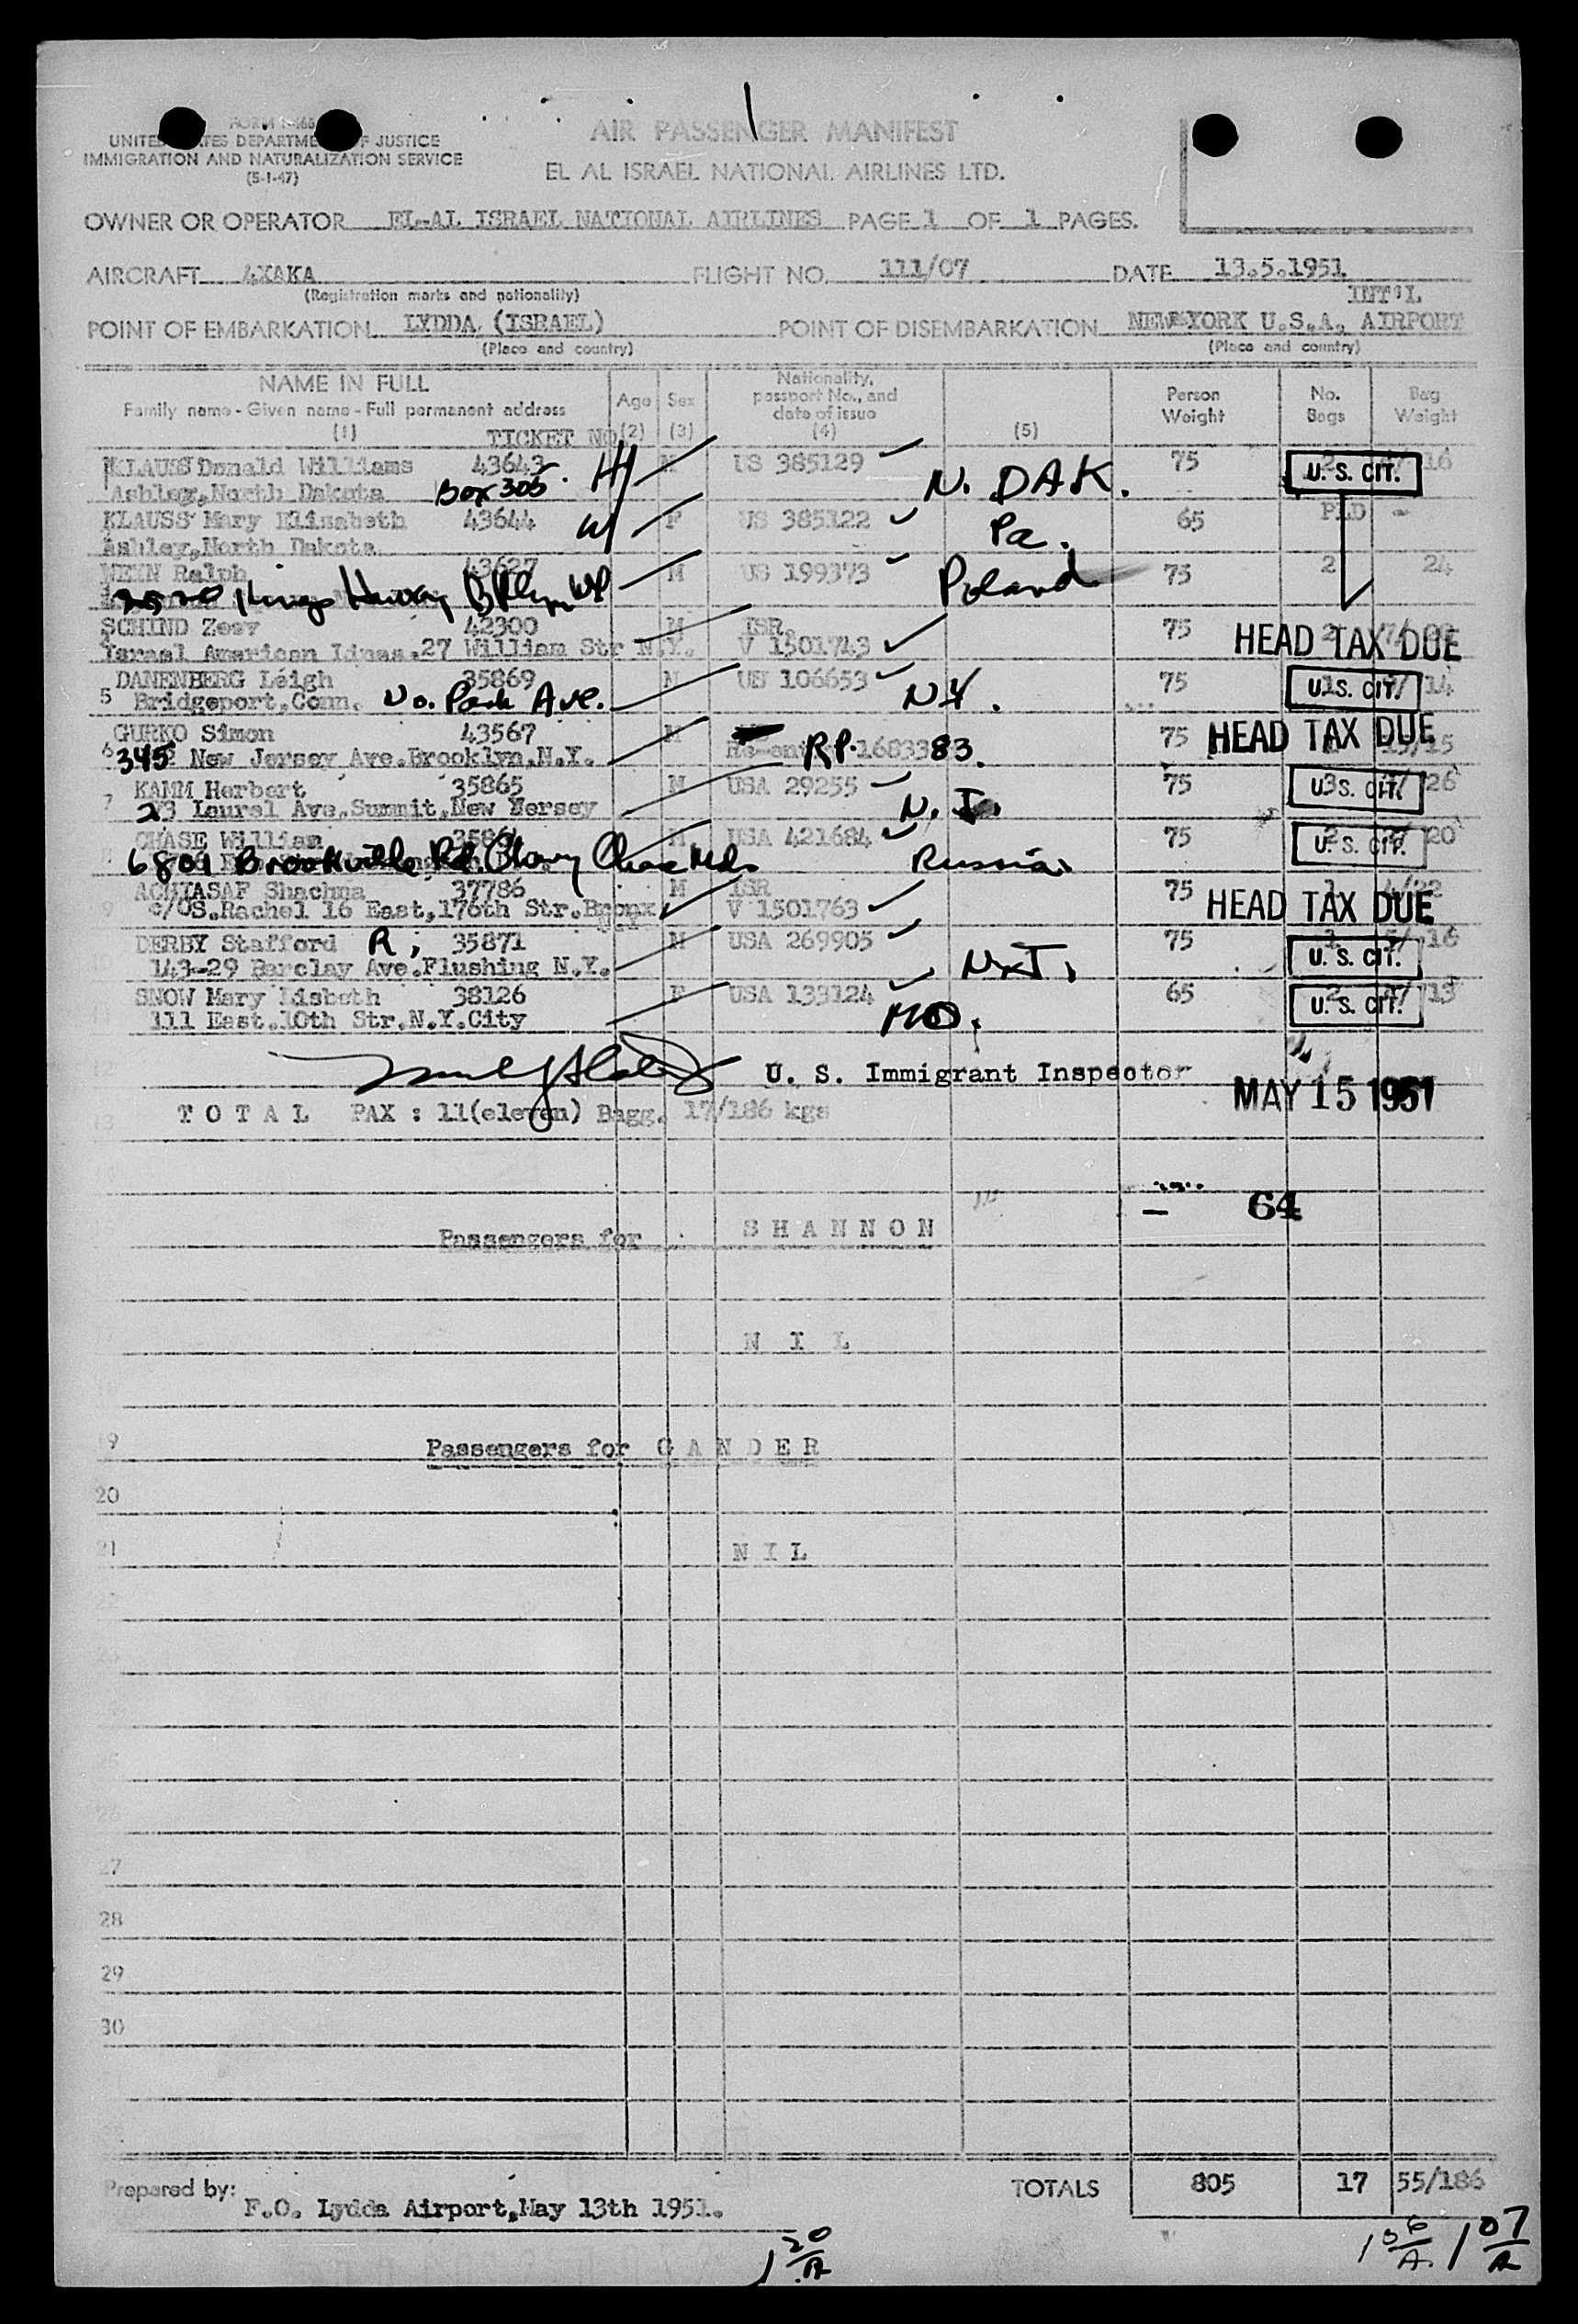 FORM I-466
UNITED STATES DEPARTMENT OF JUSTICE
IMMIGRATION AND NATURALIZATION SERVICE
(5-1-47)
AIR PASSENGER MANIFEST
EL AL ISRAEL NATIONAL AIRLINES LTD.
OWNER OR OPERATOR EL-AL ISRAEL NATIONAL AIRLINES PAGE 1 OF 1 PAGES.
AIRCRAFT 4XAKA FLIGHT NO. 111/07 DATE 13.5.1951
(Registration marks and nationality)
INT'L
POINT OF EMBARKATION LYDDA (ISRAEL) POINT OF DISEMBARKATION NEW YORK U.S.A. AIRPORT
(Place and country) (Place and country)
NAME IN FULL
Family name - Given name - Full permanent address
(1) TICKET NO
Age (2)
Sex (3)
Nationality, passport No., and date of issue (4)
(5)
Person Weight
No. Bags
Bag Weight
KLAUSS Donald Williams 43643 H/ M US 385129 75 2 16
Ashley, North Dakota Box 305 N. DAK. U. S. CIT.
KLAUSS Mary Elizabeth 43644 W/ F US 385122 65 PLD -
Ashley, North Dakota Pa.
WEIN Ralph 43627 M US 199373 75 2 24
2520 Kings Hwy Bklyn Poland
SCHIND Zeev 42300 M ISR 75 2
Israel American Lines.27 William Str N.Y. V 1501743 HEAD TAX DUE
DANENBERG Leigh 35869 M US 106653 75 1 14
5 Bridgeport, Conn. No. Park Ave. NY. U. S. CIT.
GURKO Simon 43567 M 75 15
6 345 New Jersey Ave.Brooklyn.N.Y. RP. 1683383. HEAD TAX DUE
KAMM Herbert 35865 M USA 29255 75 3 26
7 23 Laurel Ave.Summit,New Yersey N.J. U. S. CIT.
CHASE William 35864 M USA 421684 75 2 20
6801 Brookville Rd. Chevy Chase Md. Russia U. S. CIT.
ACHIASAF Shachna 37786 M ISR 75 1 22
9 c/o S.Rachel 16 East,176th Str.Bronx N.Y. V 1501763 HEAD TAX DUE
DERBY Stafford R; 35871 M USA 269905 75 1 16
143-29 Barclay Ave.Flushing N.Y. U. S. CIT.
SNOW Mary Lisbeth 38126 F USA 133124 65 2 13
111 East.10th Str.N.Y.City MO. U. S. CIT.
U. S. Immigrant Inspector
MAY 15 1951
TOTAL PAX : 11(eleven) Bagg. 17/186 kgs
- 64
Passengers for SHANNON
NIL
19 Passengers for GANDER
20
21 NIL
27
28
29
30
Prepared by: TOTALS 805 17 55/186
F.O. Lydda Airport,May 13th 1951.
1 20/A 1 06/A 1 07/A